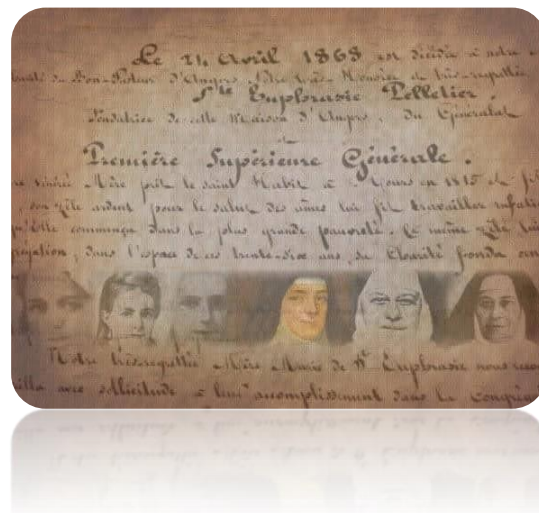 Le 24 Avril 1868 est décédée à notre
du Bon-Pasteur d'Angers Notre très Honorée et très-regrettée
Ste Euphrasie Pelletier
Fondatrice de cette Maison d'Angers, du Généralat
et
Première Supérieure Générale.
Mère prit le saint Habit à Tours en 1815 et
son zèle ardent pour le salut des âmes lui fit travailler
commença dans la plus grande pauvreté. Ce même zèle lui
dans l'espace de ces trente-six ans, de Clarité fonda
Notre très-regrettée Mère Marie de Ste Euphrasie nous
avec sollicitude à leur accomplissement dans la